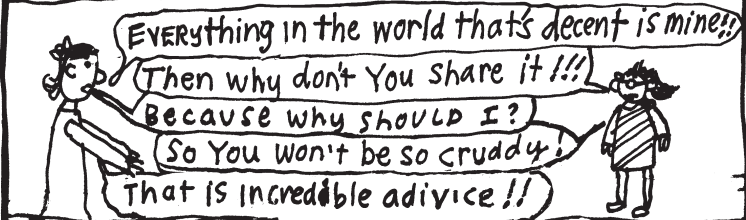 EVERything in the world that's decent is mine!!
Then why don't You share it !!!
Because why should I?
So You won't be so cruddy!
That is incredible adivice!!